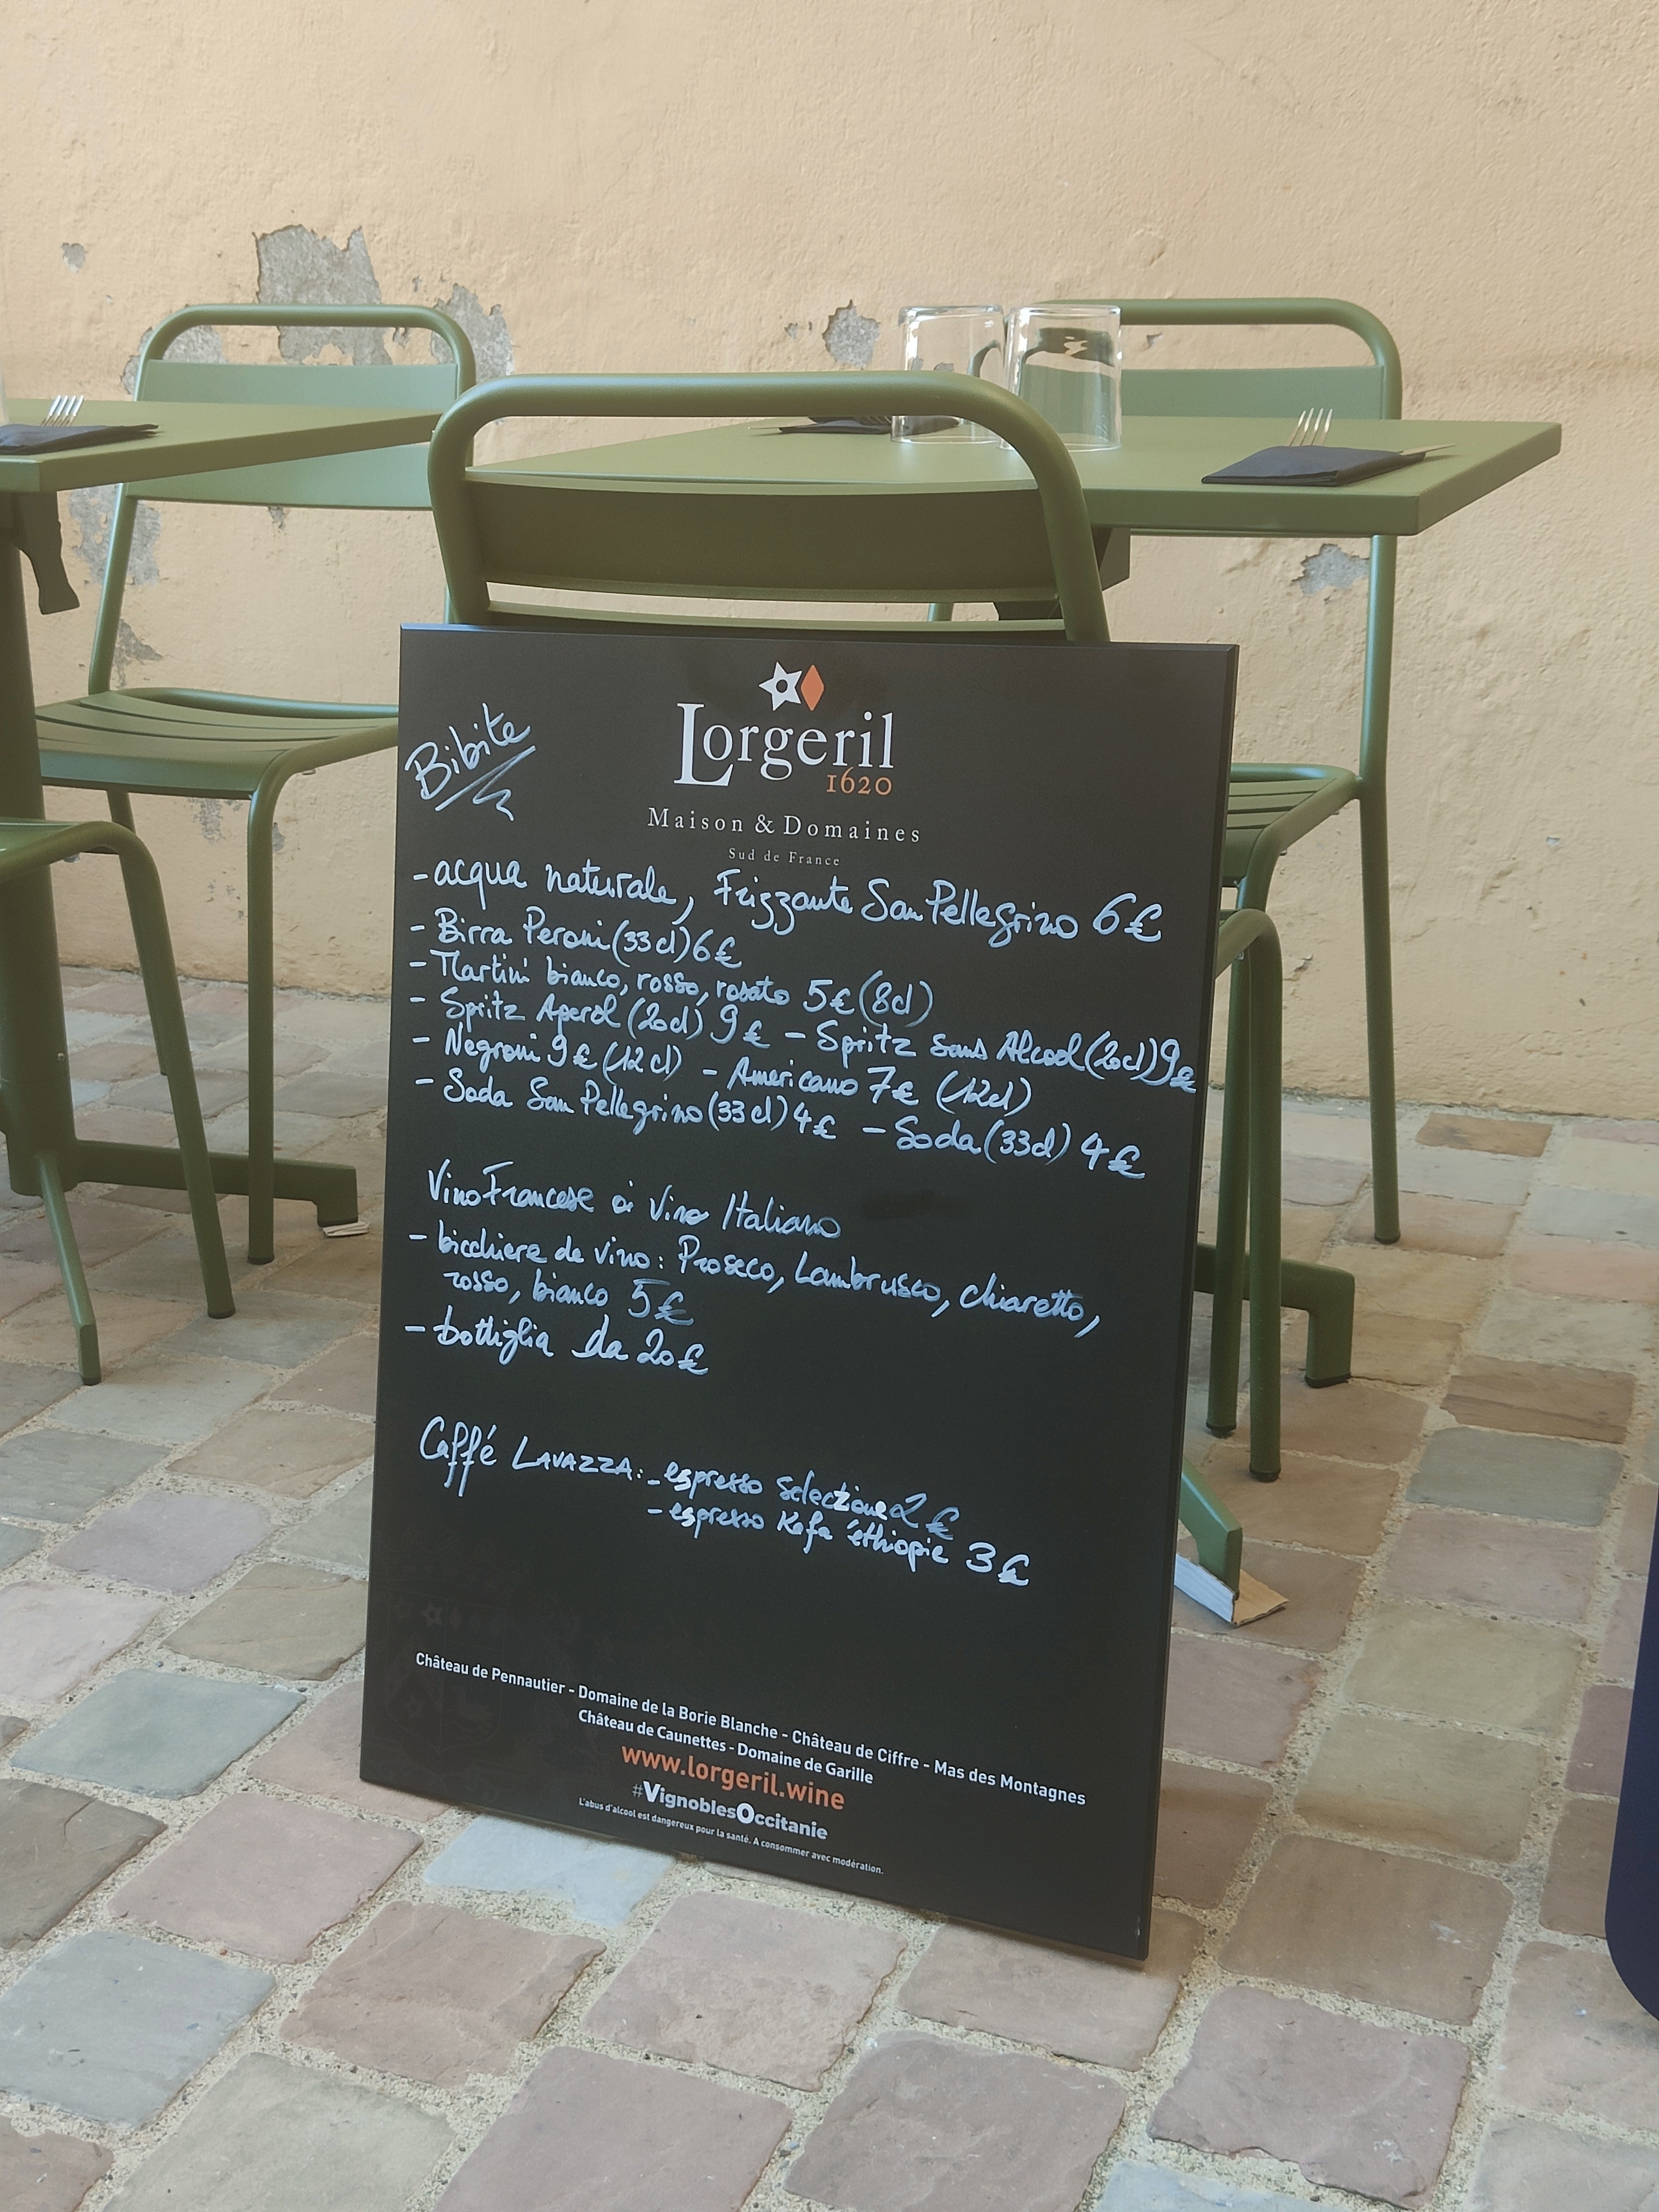 Lorgeril
1620
Maison & Domaines
Sud de France
Bibite
- acqua naturale, Frizzante San Pellegrino 6€
- Birra Peroni (33cl) 6€
- Martini bianco, rosso, rosato 5€ (8cl)
- Spritz Aperol (20cl) 9€ - Spritz sans Alcool (20cl) 9€
- Negroni 9€ (12cl) - Americano 7€ (12cl)
- Soda San Pellegrino (33cl) 4€ - Soda (33cl) 4€
Vino Francese oi Vino Italiano
- bicchiere de vino : Proseco, Lambrusco, chiaretto,
rosso, bianco 5€
- bottiglia da 20€
Caffé LAVAZZA: - espresso selezione 2€
- espresso Kafa éthiopie 3€
Château de Pennautier - Domaine de la Borie Blanche - Château de Ciffre - Mas des Montagnes
Château de Caunettes - Domaine de Garille
www.lorgeril.wine
#VignoblesOccitanie
L'abus d'alcool est dangereux pour la santé. A consommer avec modération.